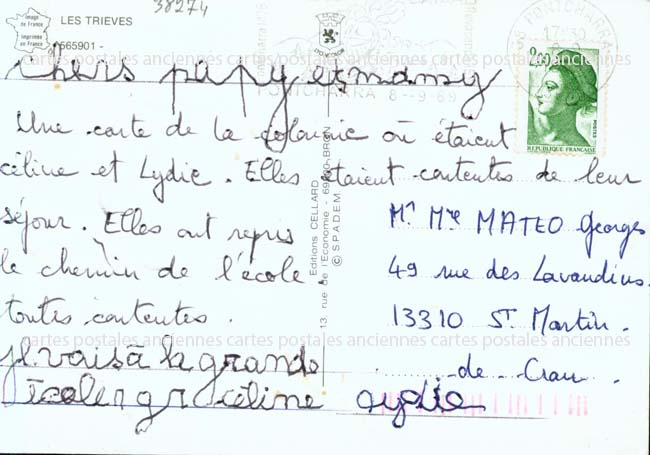 38274
LES TRIEVES
Image de France
Imprimée en France
565901 -
cartes postales anciennes cartes postales anciennes cartes postales anciennes
PONTCHARRA
17 30
PONTCHARRA 8 - 9 89
2,00
REPUBLIQUE FRANÇAISE
POSTES
LYON
chers papy et mamy
Une carte de la colonie où étaient
céline et Lydie. Elles étaient contentes de leur
séjour. Elles ont repris
le chemin de l'école
toutes contentes.
je vais à la grande
école céline Lydie
Editions CELLARD
13, rue de l'Emulation - 69500 BRON
© SPADEM
Mr Mme MATEO Georges
49 rue des Lavandins.
13310 St Martin.
de Crau.
cartes postales anciennes cartes postales anciennes cartes postales anciennes